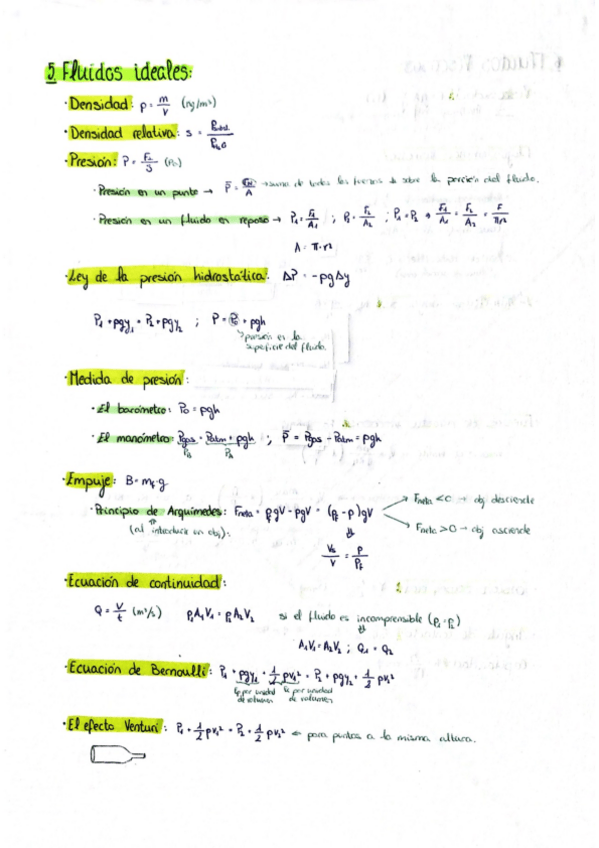 5. Fluidos ideales:
· Densidad: ρ = m/V (kg/m³)
· Densidad relativa: s =
· Presión: P = F⊥/S (Pa)
· Presión en un punto → P = /A → suma de todas las fuerzas sobre la porción del fluido.
· Presión en un fluido en reposo → P₁ = F₁/A₁ ; P₂ = F₂/A₂ ; P₁ = P₂ → F₁/A₁ = F₂/A₂ = F/πr²
A = π·r²
· Ley de la presión hidrostática: ΔP = -ρgΔy
P₁ + ρgy₁ = P₂ + ρgy₂ ; P = P₀ + ρgh
presión en la
superficie del fluido.
· Medida de presión:
· El barómetro: P₀ = ρgh
· El manómetro: Pgas = Patm + ρgh ; P = Pgas - Patm = ρgh
P_B P_A
· Empuje: B = m_f·g
· Principio de Arquímedes: Fneta = ρ_f gV - ρgV = (ρ_f - ρ)gV
Fneta < 0 → obj desciende
(al introducir un obj):
Fneta > 0 → obj asciende
Vs/V = ρ/ρ_f
· Ecuación de continuidad:
Q = V/t (m³/s) ρ₁A₁V₁ = ρ₂A₂V₂ si el fluido es incomprensible (ρ₁=ρ₂)
A₁V₁ = A₂V₂ ; Q₁ = Q₂
· Ecuación de Bernoulli: P₁ + ρgy₁ + 1/2 ρv₁² = P₂ + ρgy₂ + 1/2 ρv₂²
Ep por unidad Ec por unidad
de volumen de volumen
· El efecto Venturi: P₁ + 1/2 ρv₁² = P₂ + 1/2 ρv₂² ← para puntos a la misma altura.